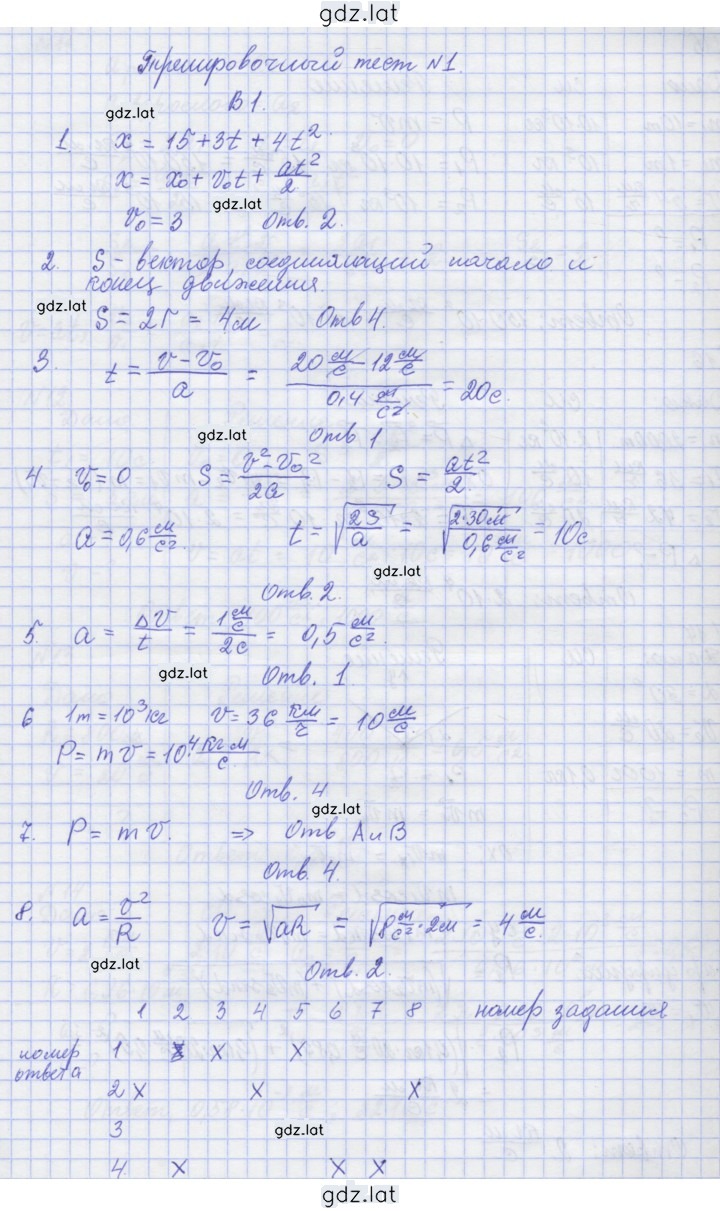 gdz.lat
Тренировочный тест №1.
gdz.lat
В1.
1. x = 15 + 3t + 4t²
x = x₀ + v₀t + at²/2
gdz.lat
v₀ = 3 Отв. 2.
2. S - вектор, соединяющий начало и
конец движения.
gdz.lat
S = 2r = 4м Отв 4.
3. t = (v - v₀)/a = (20 м/с - 12 м/с)/(0,4 м/с²) = 20с.
gdz.lat
Отв 1
4. v₀ = 0 S = (v² - v₀²)/2a S = at²/2.
a = 0,6 м/с². t = √(2S/a) = √(2·30м/0,6 м/с²) = 10с
gdz.lat
Отв. 2.
5. a = Δv/t = (1 м/с)/2с = 0,5 м/с².
gdz.lat
Отв. 1.
6 1т = 10³кг v = 36 км/ч = 10 м/с.
P = mv = 10⁴ кг·м/с.
Отв. 4
gdz.lat
7. P = mv. => Отв А и В
Отв. 4.
8. a = v²/R v = √aR = √(8 м/с² · 2м) = 4 м/с.
gdz.lat
Отв. 2.
1 2 3 4 5 6 7 8 номер задания
номер ответа
1 x x
2 x x x
3
gdz.lat
4. x x x
gdz.lat